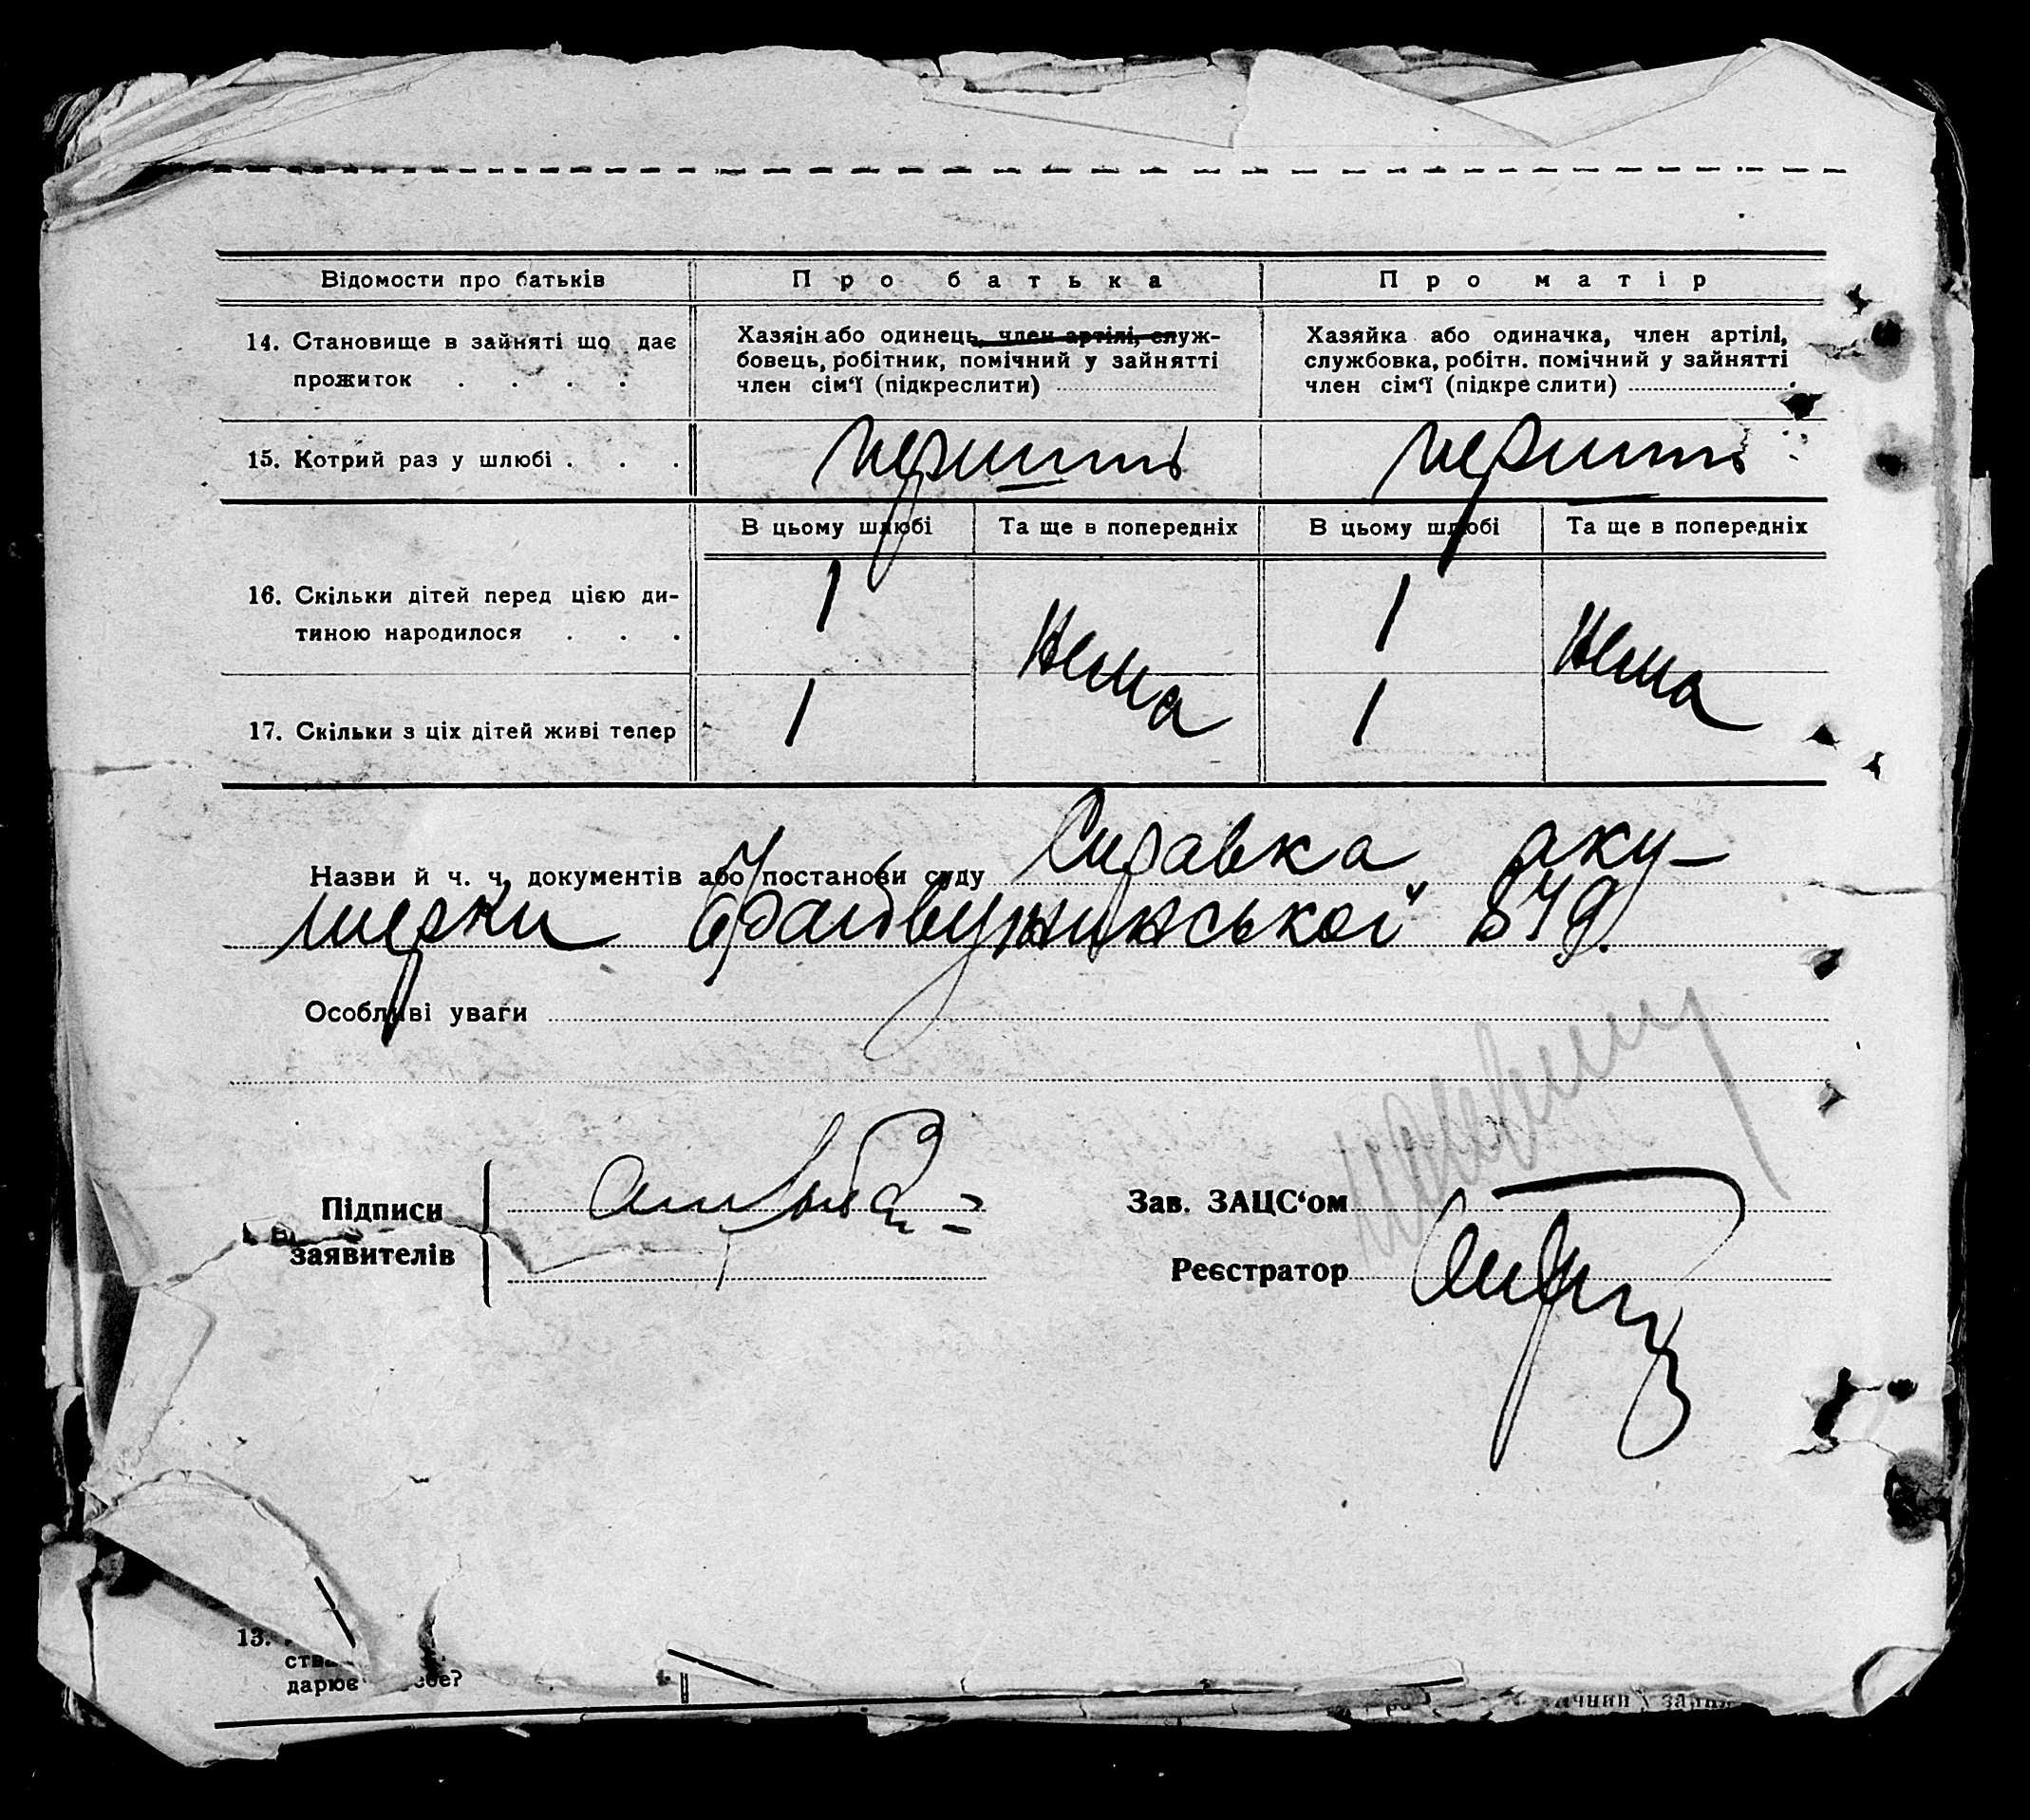 Відомости про батьків
Про батька
Про матір
14. Становище в зайняті що дає
прожиток . . . .
Хазяін або одинець, член артілі, служ-
бовець, робітник, помічний у зайнятті
член сім‘ї (підкреслити)
Хазяйка або одиначка, член артілі,
службовка, робітн. помічний у зайнятті
член сім‘ї (підкреслити)
15. Котрий раз у шлюбі . . .
В цьому шлюбі
Та ще в попередніх
В цьому шлюбі
Та ще в попередніх
16. Скільки дітей перед цією ди-
тиною народилося . . .
1
Нема
1
Нема
17. Скільки з ціх дітей живі тепер
1
1
Назви й ч. ч. документів або постанови суду Справка аку-
шерки
Особливі уваги
Підписи
заявителів
Зав. ЗАЦС‘ом
Реєстратор
13.
дарює